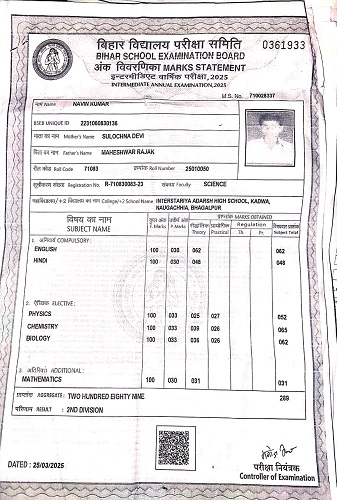 बिहार विद्यालय परीक्षा समिति
0361933
BIHAR SCHOOL EXAMINATION BOARD
अंक विवरणिका MARKS STATEMENT
इन्टरमीडिएट वार्षिक परीक्षा, 2025
INTERMEDIATE ANNUAL EXAMINATION, 2025
M.S. No. 710028337
नाम Name NAVIN KUMAR
BSEB UNIQUE ID 2231060830136
माता का नाम Mother's Name SULOCHNA DEVI
पिता का नाम Father's Name MAHESHWAR RAJAK
रौल कोड Roll Code 71083 क्रमांक Roll Number 25010050
सूचीकरण संख्या Registration No. R-710830083-23 संकाय Faculty SCIENCE
महाविद्यालय/+2 विद्यालय का नाम College/+2 School Name INTERSTARIYA ADARSH HIGH SCHOOL, KADWA,
NAUGACHHIA, BHAGALPUR
विषय का नाम
SUBJECT NAME
पूर्णांक F. Marks
उत्तीर्णांक P. Marks
प्राप्तांक MARKS OBTAINED
सैद्धांतिक Theory
प्रायोगिक Practical
Regulation
Th. Pr.
Subject Total
1. अनिवार्य COMPULSORY:
ENGLISH 100 030 062 062
HINDI 100 030 048 048
2. ऐच्छिक ELECTIVE:
PHYSICS 100 033 025 027 052
CHEMISTRY 100 033 039 026 065
BIOLOGY 100 033 036 026 062
3. अतिरिक्त ADDITIONAL:
MATHEMATICS 100 030 031 031
प्राप्तांक AGGREGATE: TWO HUNDRED EIGHTY NINE 289
परिणाम RESULT : 2ND DIVISION
DATED : 25/03/2025
परीक्षा नियंत्रक
Controller of Examination